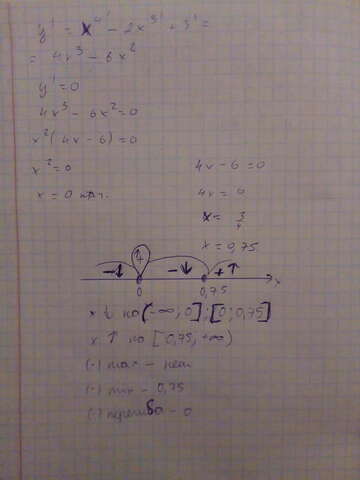 y' = x⁴' - 2x³' + 3' =
= 4x³ - 6x²
y' = 0
4x³ - 6x² = 0
x²(4x - 6) = 0
x² = 0
4x - 6 = 0
x = 0 кр.т.
4x = 6
x = 3
x = 0,75
- ↓ - ↓ + ↑
0 0,75 x
x ↓ на (-∞; 0]; [0; 0,75]
x ↑ на [0,75; +∞)
(·) max - нет
(·) min - 0,75
(·) перегиба - 0